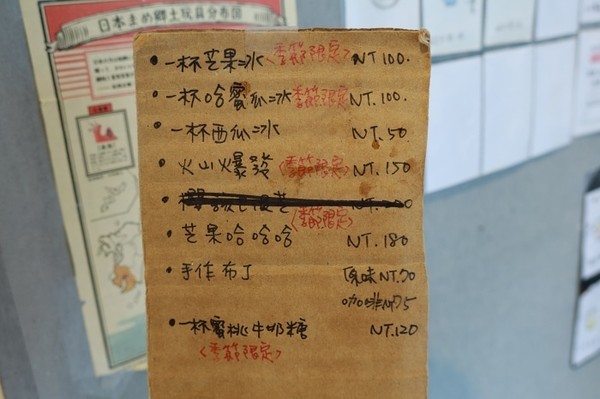 日本まめ郷土玩具分布図
•一杯芒果冰〈季節限定〉 NT 100.
•一杯哈蜜瓜冰 季節限定 NT.100.
•一杯西瓜冰 NT.50
•火山爆發〈季節限定〉 NT.150
〈季節限定〉
•芒果哈哈哈 NT.180
•手作布丁 原味NT.70
咖啡NT75
•一杯蜜桃牛奶糖 NT.120
〈季節限定〉